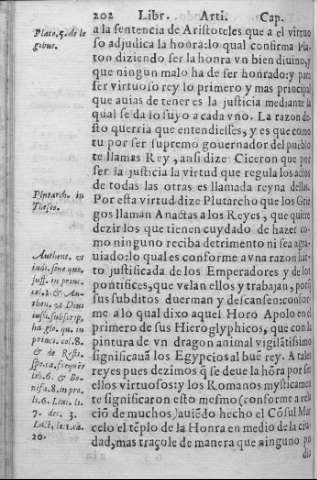 202 Libr. Arti. Cap.
a la sentencia de Aristoteles que a el virtuo
so adjudica la honra: lo qual confirma Pla-
ton diziendo ser la honra vn bien diuino, y
que ningun malo ha de ser honrado: y para
ser virtuoso rey lo primero y mas principal
que auias de tener es la justicia mediante la
qual se da lo suyo a cada vno. La razon de-
sto querria que entendiesses, y es que como
tu por ser supremo gouernador del pueblo
te llamas Rey, ansi dize Ciceron que por
ser la justicia la virtud que regula los actos
de todas las otras es llamada reyna dellas.
Por esta virtud dize Plutarcho que los Grie
gos llaman Anactas a los Reyes, que quiere
dezir los que tienen cuydado de hazer co-
mo ninguno reciba detrimento ni sea agra
uiado: lo qual es conforme a vna razon har-
to justificada de los Emperadores y de los
pontifices, que velan ellos y trabajan, porq̃
sus subditos duerman y descansen: confor-
me a lo qual dixo aquel Horo Apolo en el
primero de sus Hieroglyphicos, que con la
pintura de vn dragon animal vigilãtissimo
significauã los Egypcios al buẽ rey. A tales
reyes pues dezimos q̃ se deue la hõra por ser
ellos virtuosos: y los Romanos mysticamen
te significaron esto mesmo (conforme a rela
ciõ de muchos) auiẽdo hecho el Cõsul Mar
celo el tẽplo de la Honra en medio de la ciu
dad, mas traçole de manera que ninguno po
dia
Plato. 5. de le
gibus.
Plutarch. in
Theseo.
Authene. vt
iudi. sine quo.
suff. in prin.
col. 2. & Au-
then. vt Diui
iussi. subscrip.
ha glo. qu. in
princi. col. 8.
& de Resti.
li. 6. & Bo-
nifa. 8. in pro.
li. 6. Liui. li.
7. dec. 3.
Lact. li. 1. ca.
20.